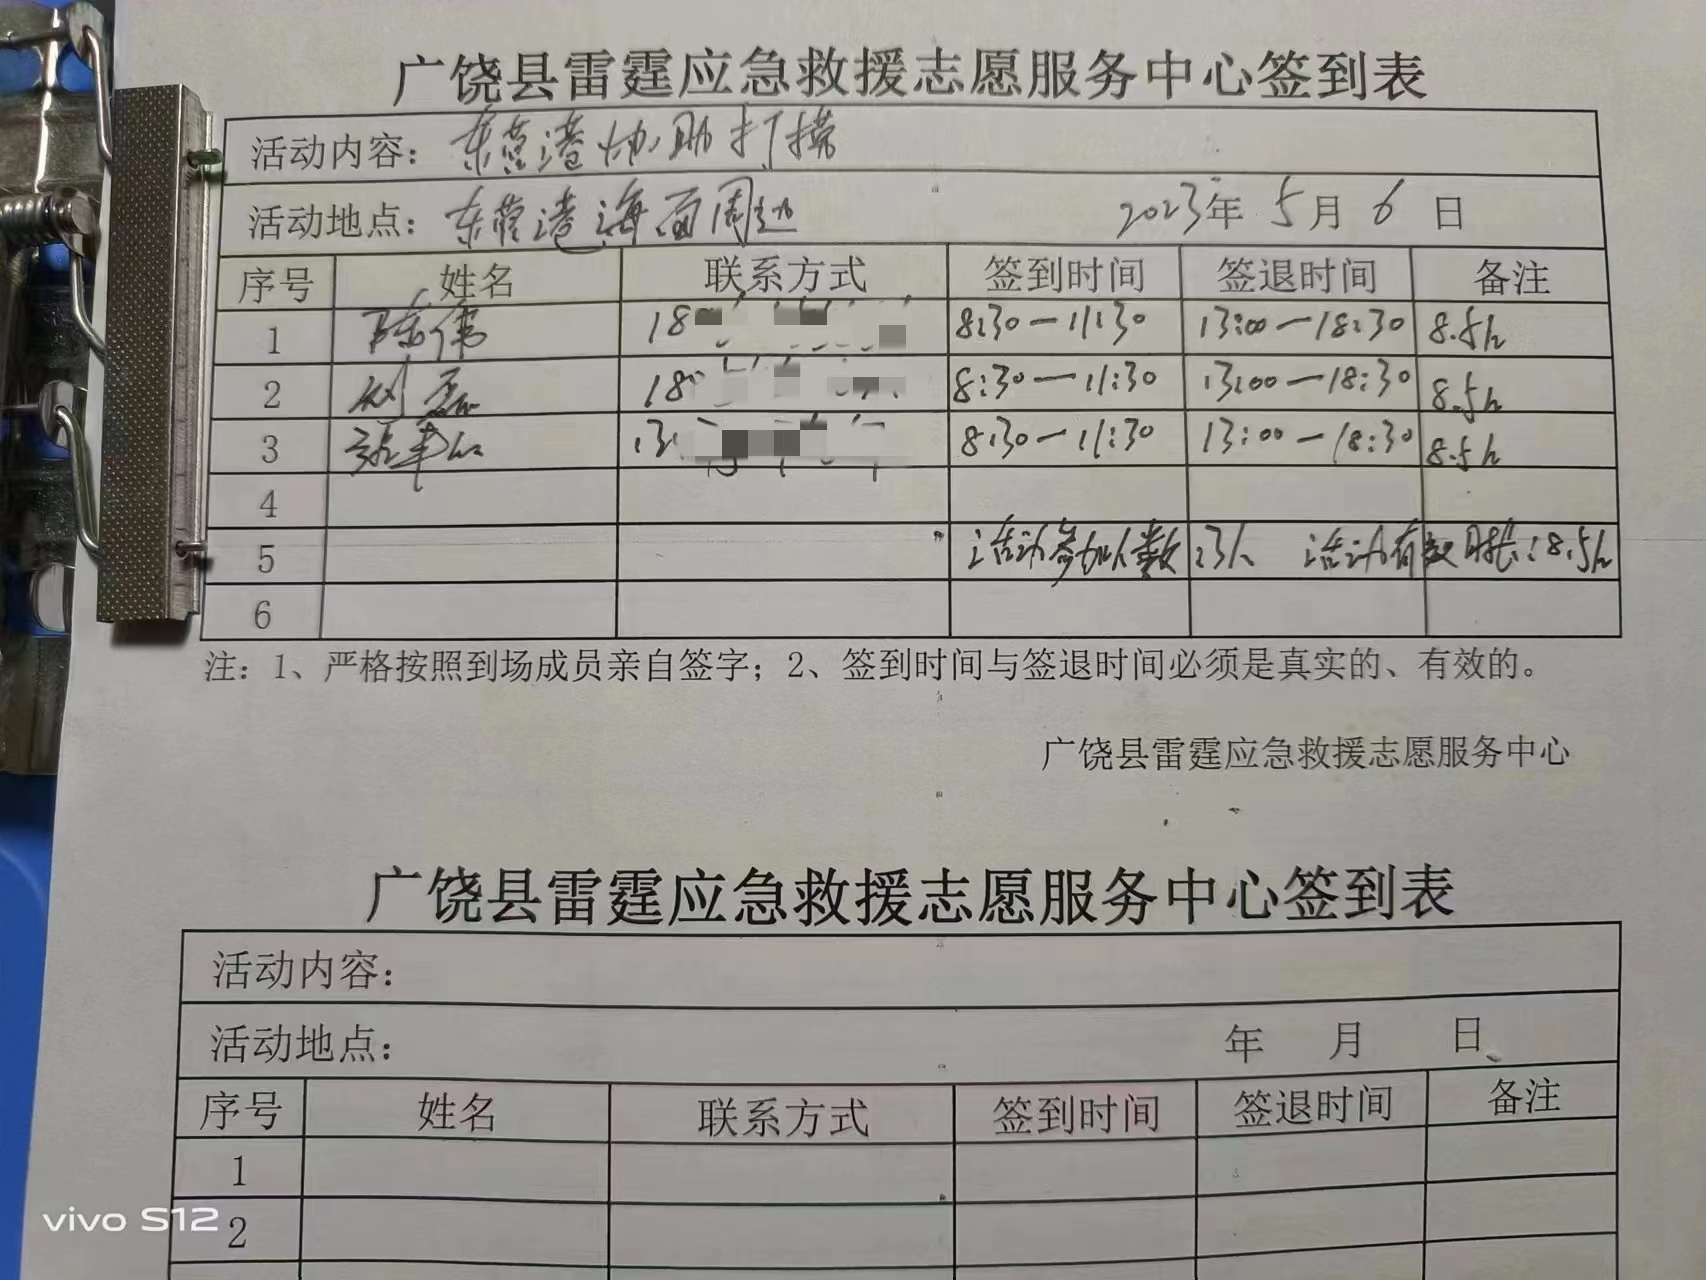 广饶县雷霆应急救援志愿服务中心签到表
活动内容：东营港协助打捞
活动地点：东营港海面周边 2023年 5月 6 日
序号 姓名 联系方式 签到时间 签退时间 备注
1 陈伟 18 8:30—11:30 13:00—18:30 8.5h
2 刘磊 18 8:30—11:30 13:00—18:30 8.5h
3 13 8:30—11:30 13:00—18:30 8.5h
4
5 活动参加人数：3人 活动有效时长：8.5h
6
注：1、严格按照到场成员亲自签字；2、签到时间与签退时间必须是真实的、有效的。
广饶县雷霆应急救援志愿服务中心
广饶县雷霆应急救援志愿服务中心签到表
活动内容：
活动地点： 年 月 日
序号 姓名 联系方式 签到时间 签退时间 备注
1
2
vivo S12